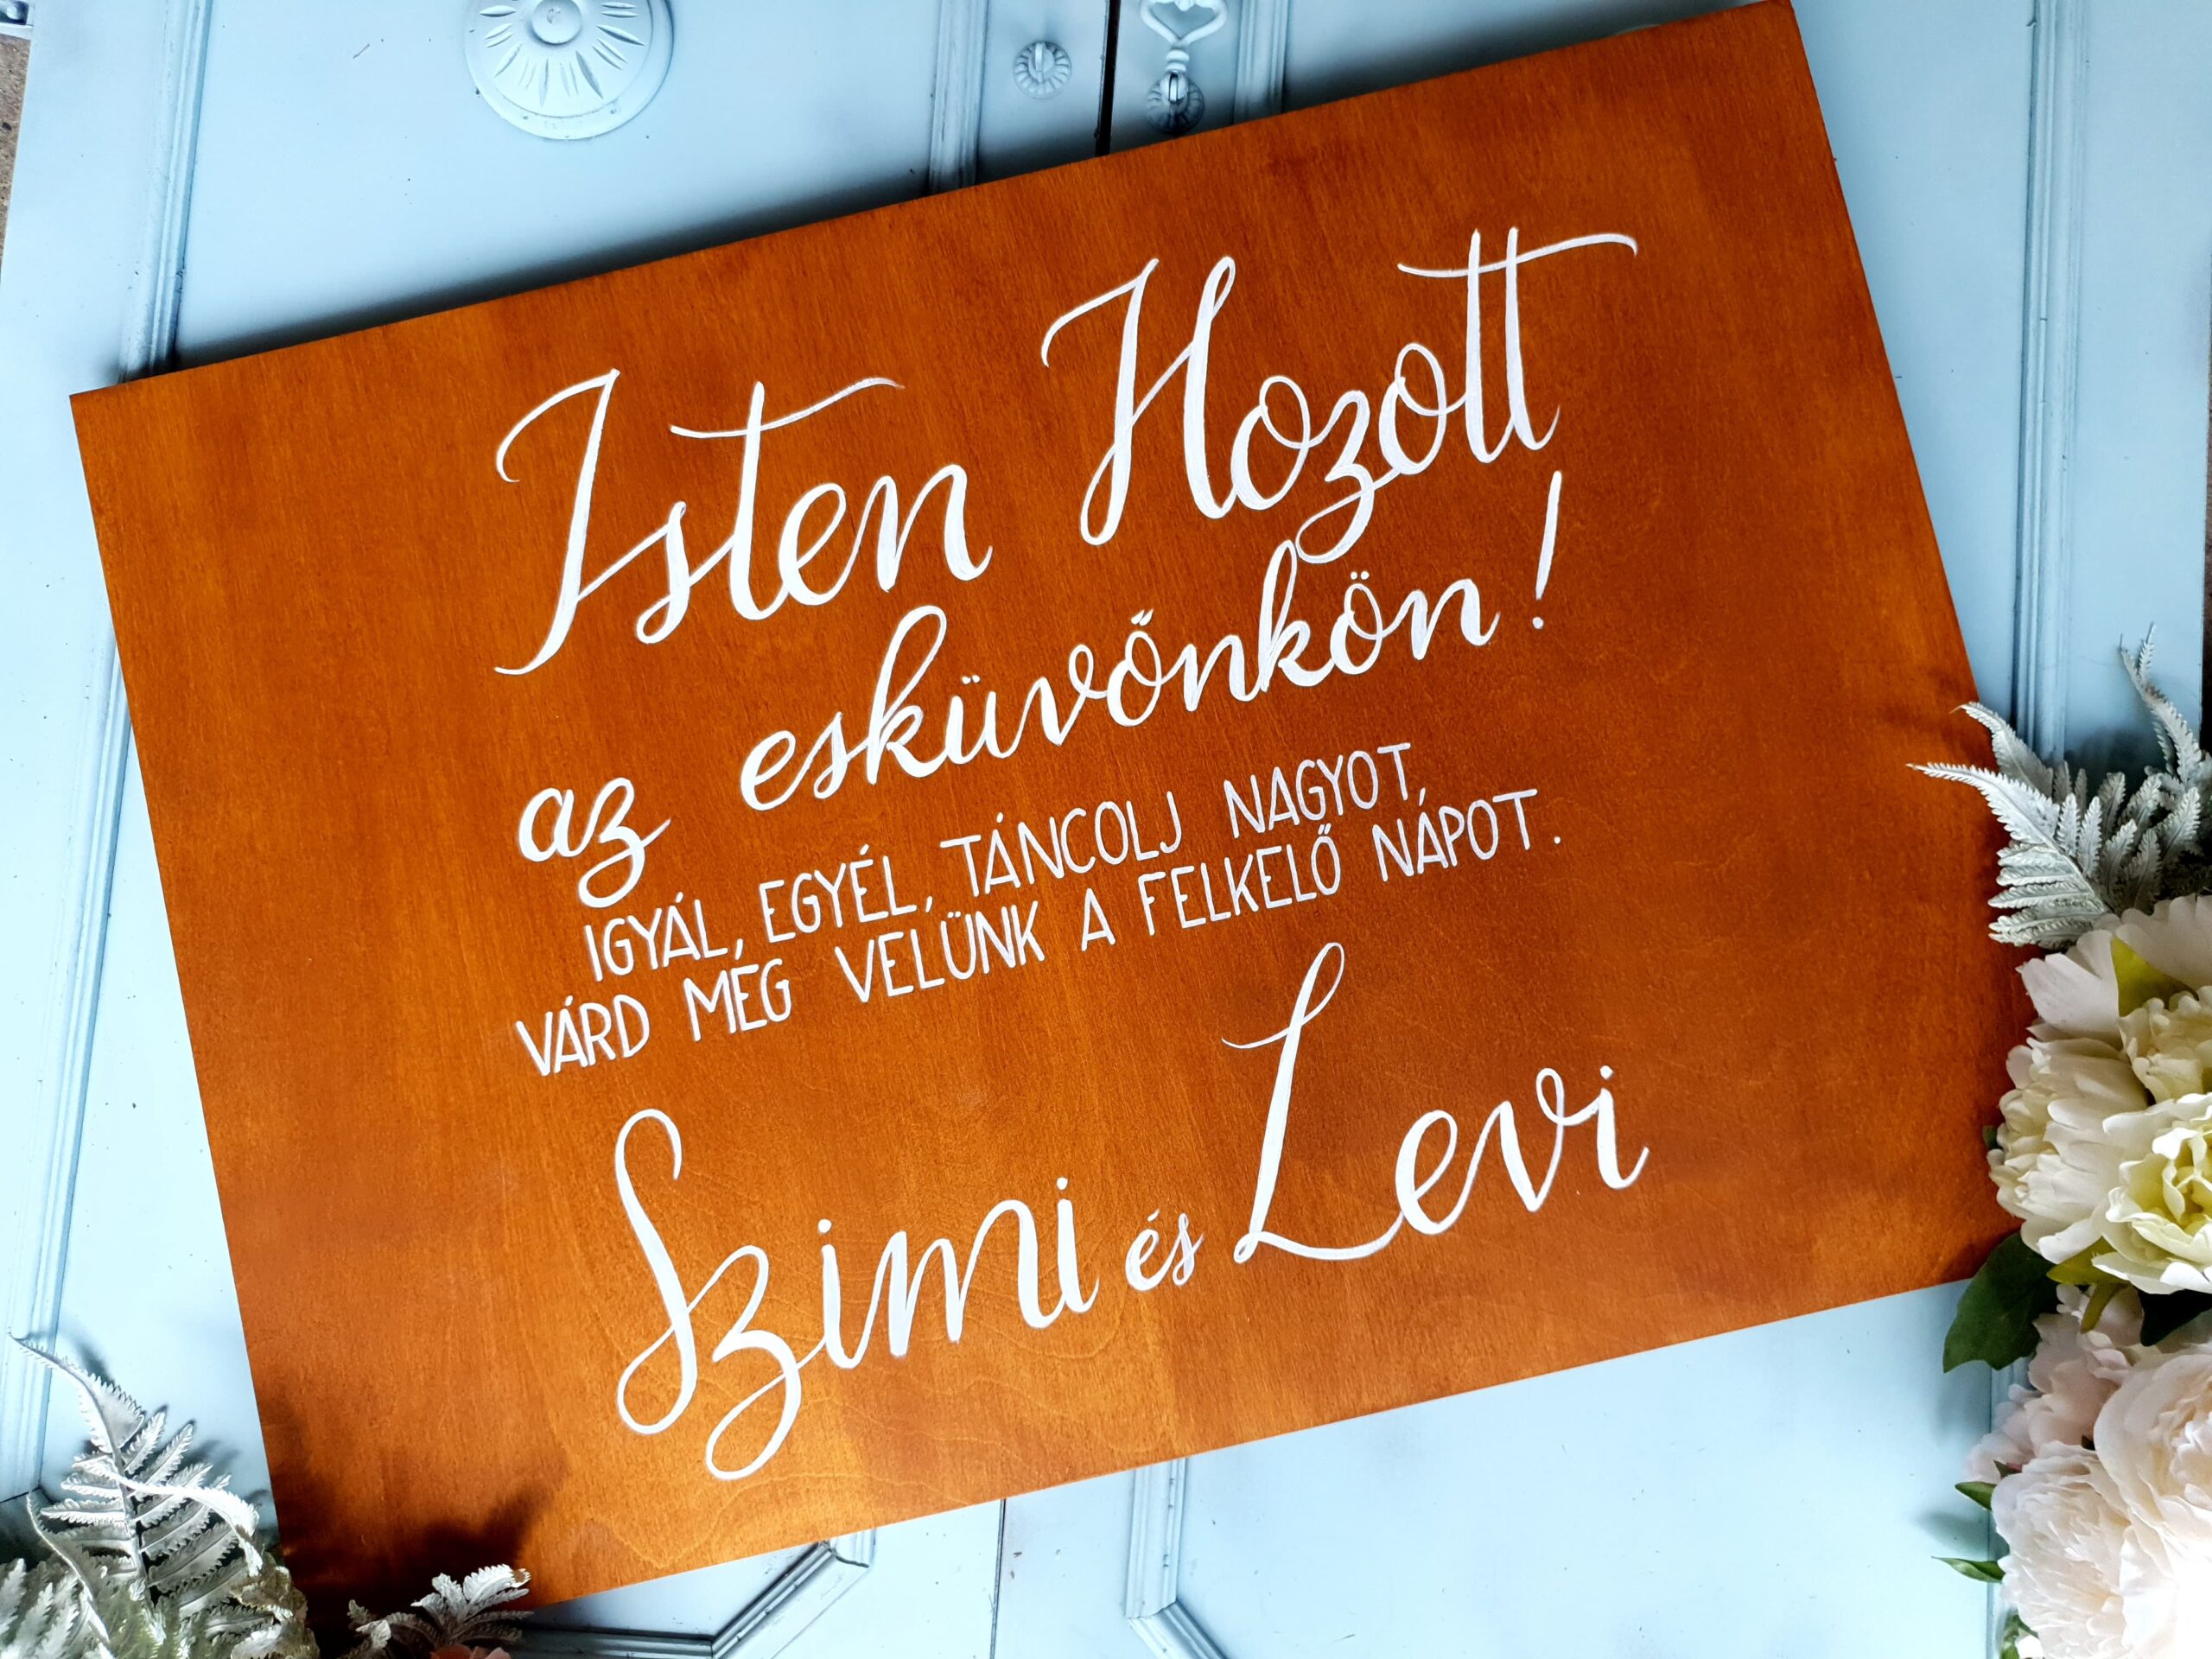 Isten Hozott
az esküvőnkön!
IGYÁL, EGYÉL, TÁNCOLJ NAGYOT,
VÁRD MEG VELÜNK A FELKELŐ NÁPOT.
Szimi és Levi